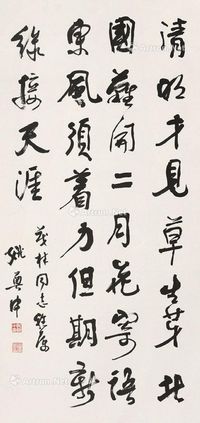 清明才见草生芽北
國難開二月花寄语
東風须着力但期新
綠接天涯
茂林同志雅屬
姚奠中